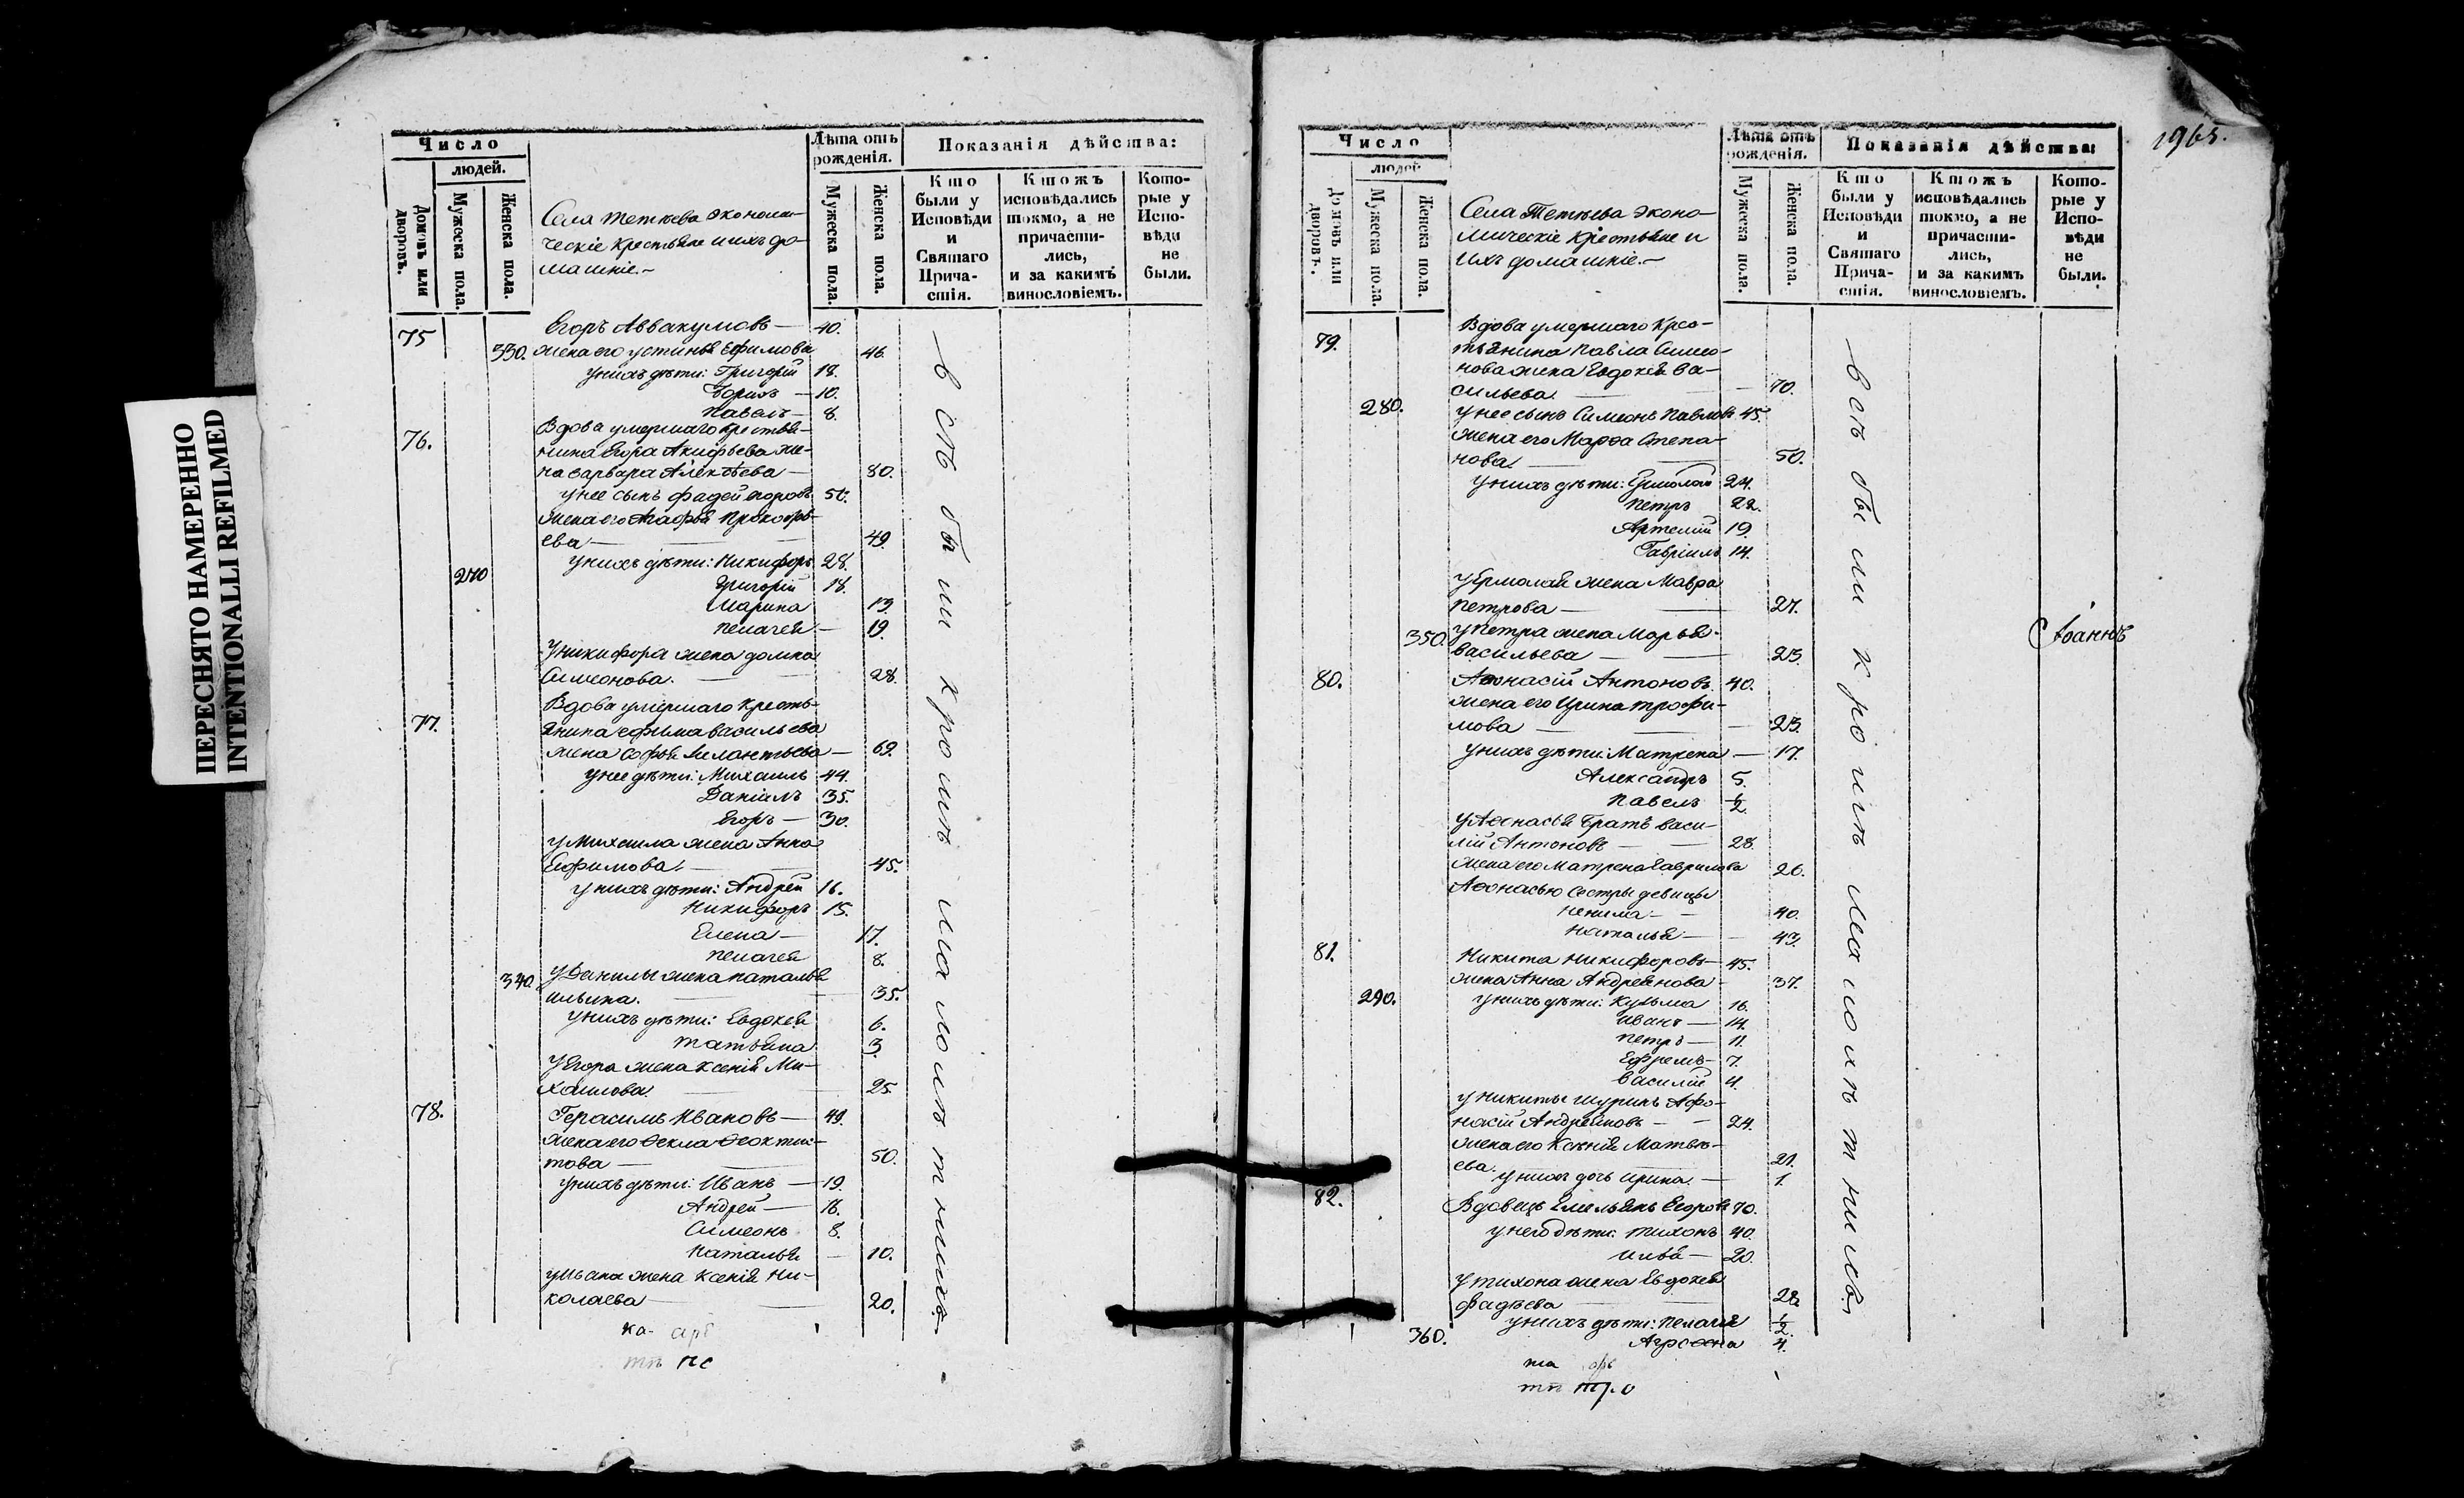 ПЕРЕСНЯТО НАМЕРЕННО
INTENTIONALLI REFILMED
Число
людей.
Домовъ или дворовъ.
Мужеска пола.
Женска пола.
Села Теткева экономи-
ческіе Крестьяне и ихъ до-
машніе.
Лѣта отъ рожденія.
Мужеска пола.
Женска пола.
Показанія дѣйства:
Кто были у Исповѣди и Святаго Причастія.
Ктожъ исповѣдались токмо, а не причастились, и за какимъ винословіемъ.
Которые у Исповѣди не были.
75 Егоръ Аввакумовъ — 40.
330. жена его Устинья Ефимова 46
у нихъ дѣти: Григорій 18.
Борисъ — 10.
Павелъ — 8.
76. Вдова умершаго крестья-
нина Егора Акифьева же-
на Варвара Алексѣева — 80.
у нее сынъ Фадей Егоровъ 50.
жена его Агафья Прокофь-
ева — 49.
у нихъ дѣти: Никифоръ 28.
270 Григорій 18.
Марина 13.
Пелагея — 19.
У Никифора жена Домна
Симеонова. — 28.
Вдова умершаго кресть-
77. янина Ефима Васильева
жена Софья Мелентьева — 69.
у нее дѣти: Михаилъ 44.
Даніилъ 35.
Егоръ — 30.
у Михаила жена Анна
Ефимова. — 45.
у нихъ дѣти: Андрей 16.
Никифоръ 15.
Елена — 17.
Пелагея 8.
340. у Данилы жена Наталья
Ильина. — 35.
у нихъ дѣти: Евдокея 6.
Татьяна 3
у Егора жена Ксенія Ми-
хаилова. 25.
78. Герасимъ Ивановъ — 49.
жена его Ѳекла Ѳеокти-
това — 50.
у нихъ дѣти: Иванъ — 19.
Андрей — 16.
Симеонъ 8.
Наталья — 10.
у Ивана жена Ксенія Ни-
колаева — 20.
всѣ были кромѣ малолѣтнихъ
Число
людей
Домовъ или дворовъ.
Мужеска пола.
Женска пола.
Села Теткева эконо-
мическіе крестьяне и
ихъ домашніе.
Лѣта отъ рожденія.
Мужеска пола.
Женска пола.
Показанія дѣйства:
Кто были у Исповѣди и Святаго Причастія.
Ктожъ исповѣдались токмо, а не причастились, и за какимъ винословіемъ.
Которые у Исповѣди не были.
1965.
79. Вдова умершаго крес-
тьянина Павла Симео-
нова жена Евдокея Ва-
сильева. — 70.
280. у нее сынъ Симеонъ Павловъ 45.
жена его Марѳа Степа-
нова. — 50.
у нихъ дѣти: Ермолай 24.
Петръ 22.
Артемій 19.
Гавріилъ 14.
у Ермолая жена Мавра
Петрова — 27.
350. у Петра жена Марья
Васильева — 25.
80. Аѳонасій Антоновъ. 40.
жена его Ирина Трофи-
мова — 25.
у нихъ дѣти: Матрена — 17.
Александръ 5.
Павелъ ½.
у Аѳонасья братъ Васи-
лій Антоновъ — 28.
жена его Матрена Гаврилова 26.
Аѳонасью сестры девицы
40.
Наталья — 43.
81. Никита Никифоровъ — 45.
жена Анна Андреянова — 37.
290. у нихъ дѣти: Кузьма 16.
Иванъ — 14.
Петръ — 11.
Ефремъ — 7.
Василій 4.
у Никиты шуринъ Афо-
насій Андреяновъ — 24.
жена его Ксенія Матвѣ-
ева. 21.
у нихъ дочь Ирина. — 1.
82. Вдовецъ Емельянъ Егоровъ 70.
у него дѣти: Тихонъ 40.
Илья — 20.
у Тихона жена Евдокея
Фадѣева — 28.
у нихъ дѣти: Пелагея ½.
360. Агрофена 4.
всѣ были кромѣ малолѣтнихъ
Іоаннъ